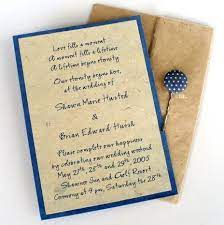 Love fills a moment
A moment fills a lifetime
A lifetime begins eternity
Our eternity begins here,
at the wedding of
Shawn Marie Husted
&
Brian Edward Hursh
Please complete our happiness
by celebrating our wedding weekend
May 27th, 28th, and 29th, 2005
Shawnee Inn and Golf Resort
Ceremony at 4 pm, Saturday the 28th